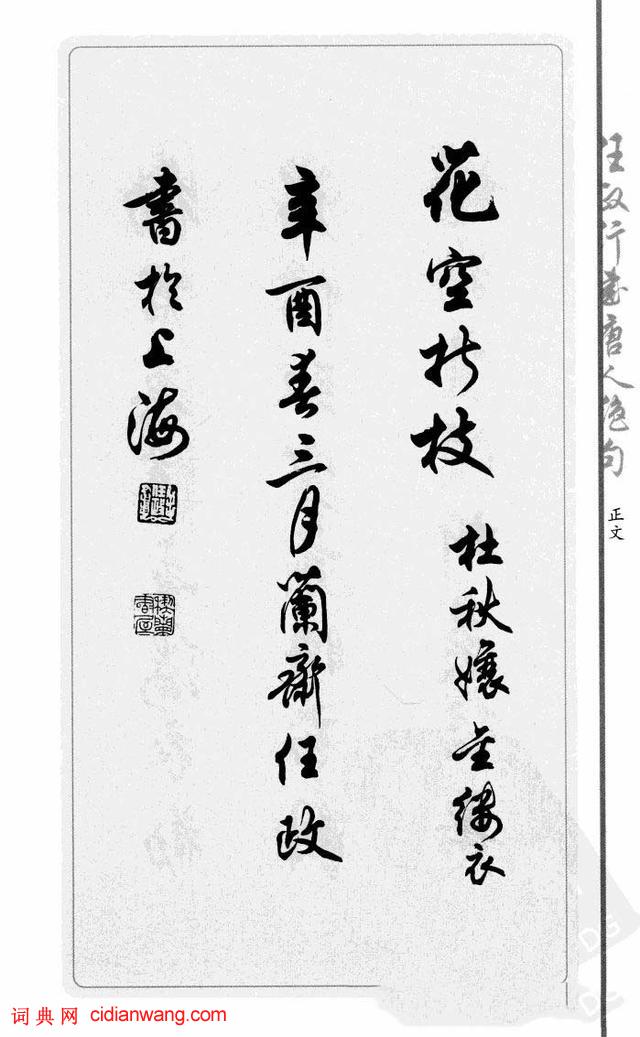 任政行書唐人绝句
正文
花空折枝 杜秋孃金缕衣
辛酉春三月蘭齋任政
書於上海
词典网 cidianwang.com